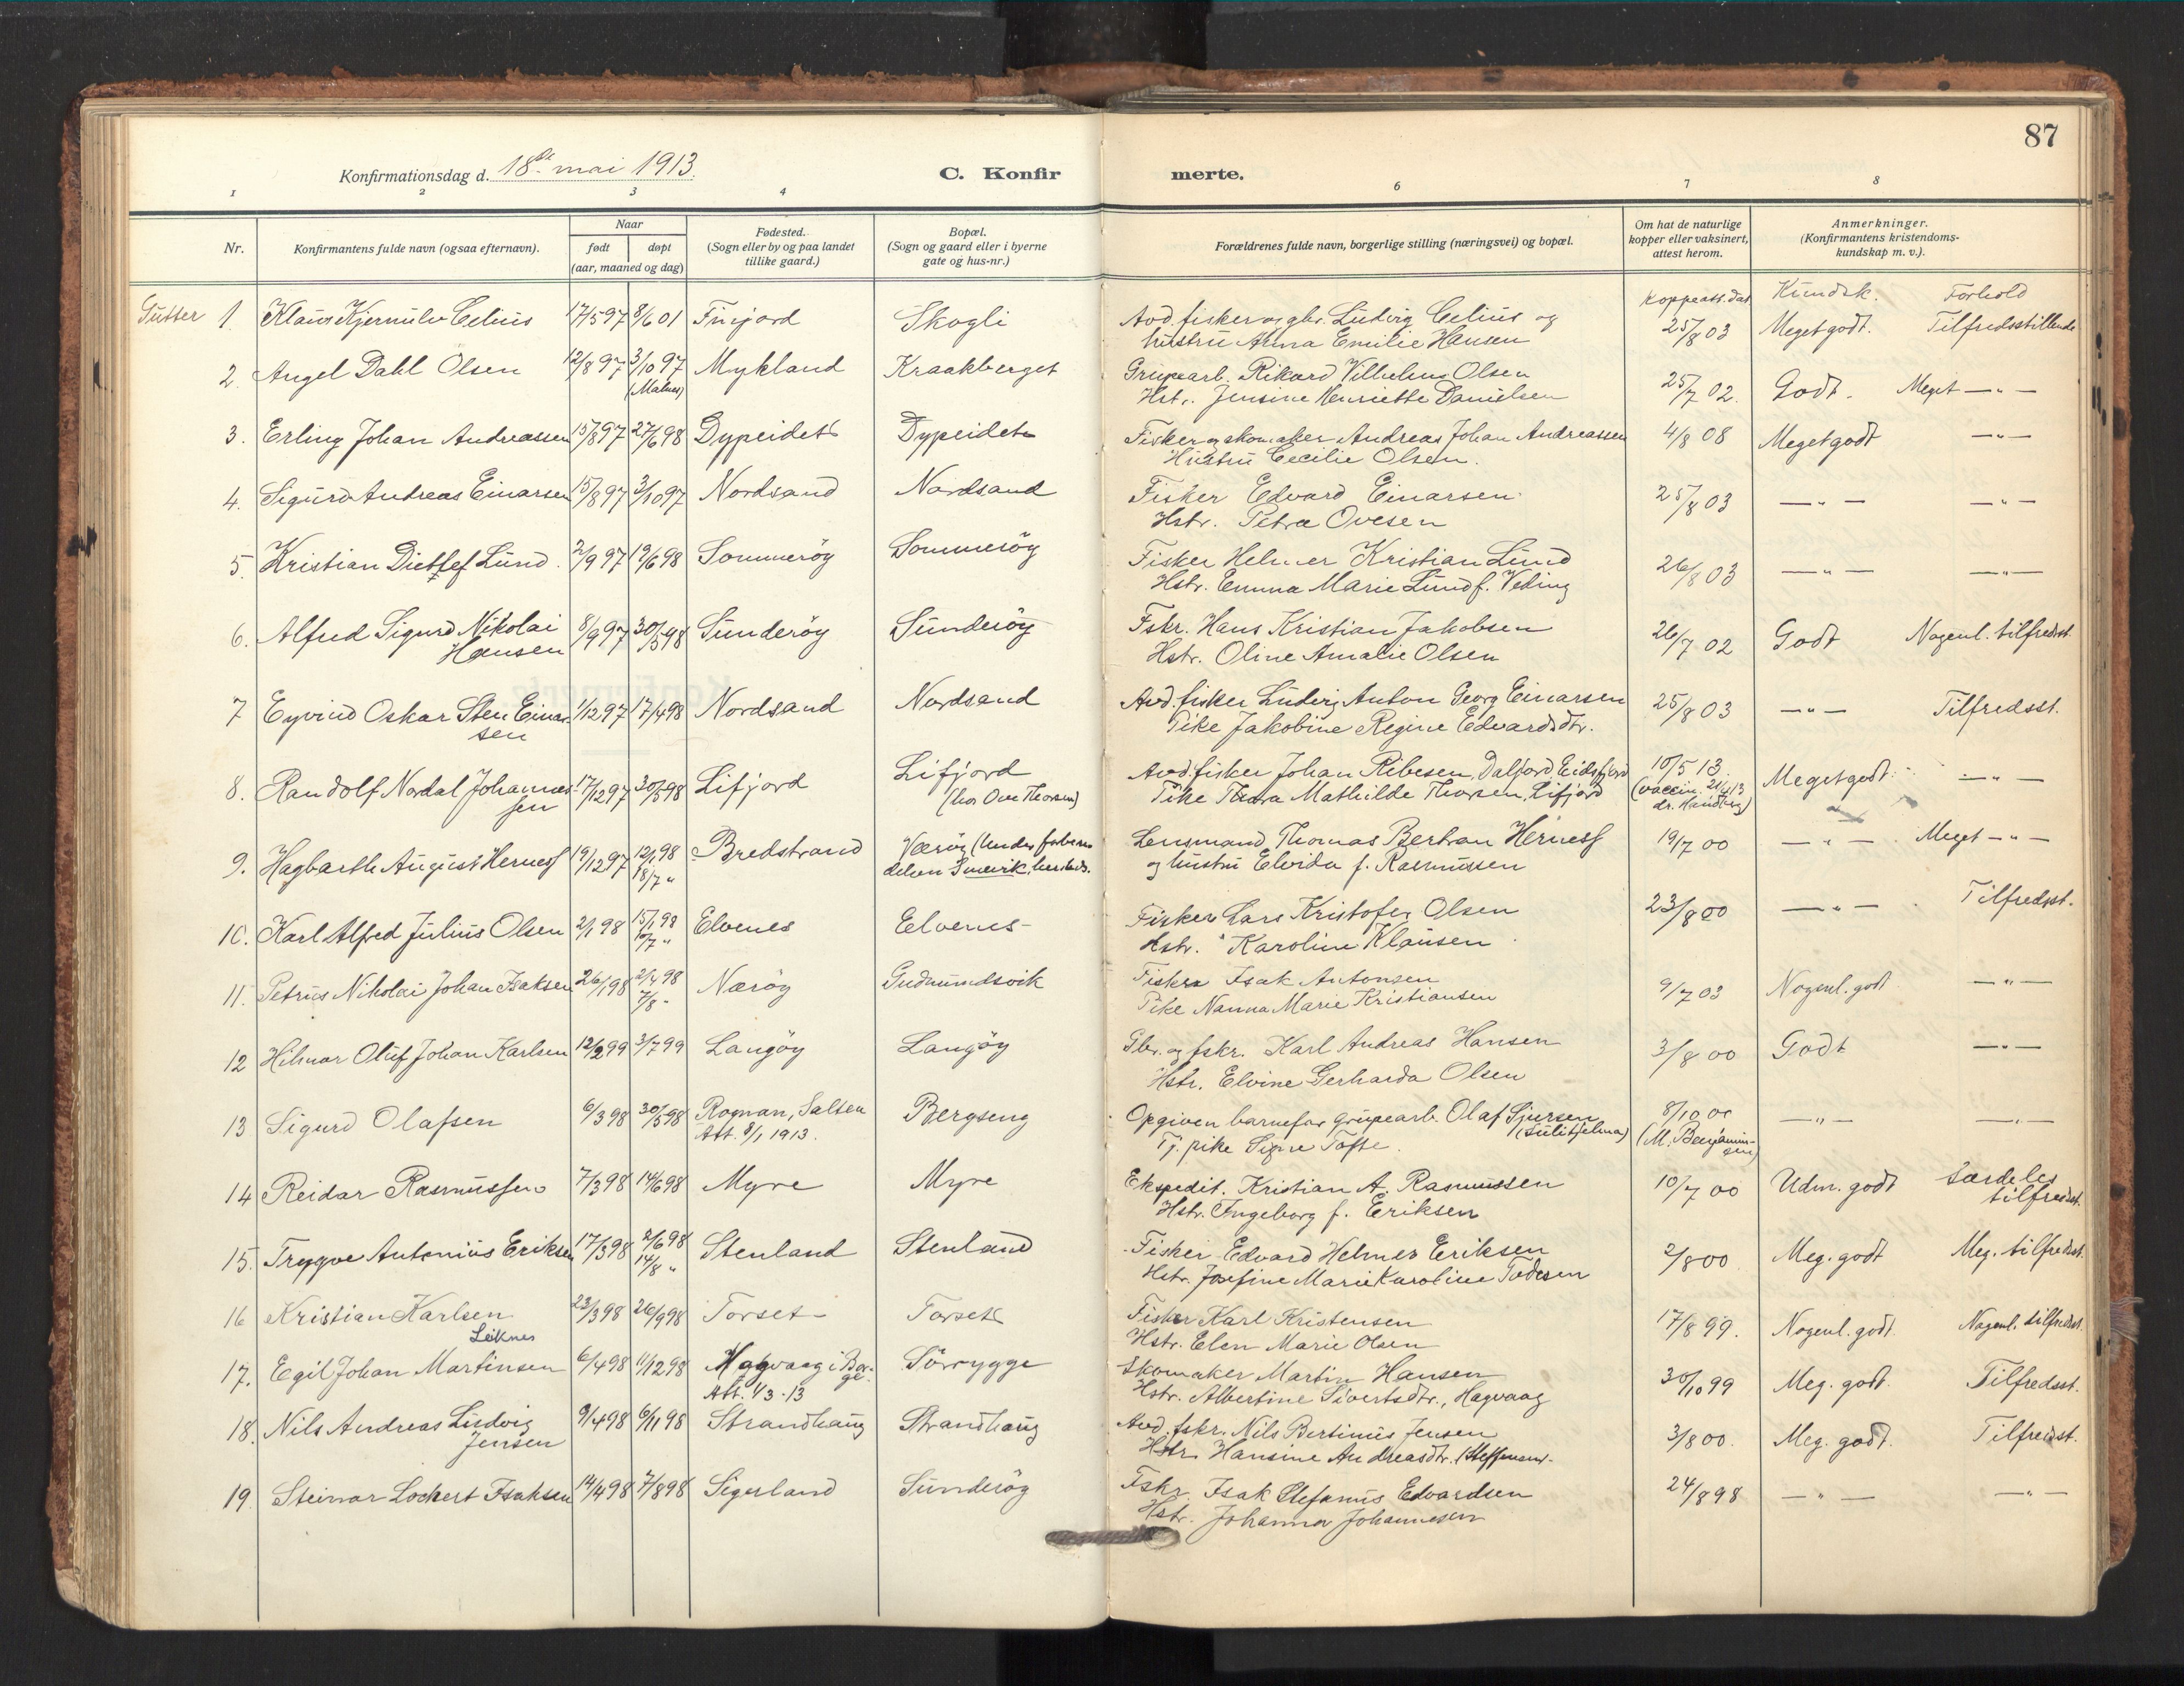 87
Konfirmationsdag d. 18de mai 1913.
C. Konfirmerte.
1 2 3 4 6 7 8
Nr. Konfirmantens fulde navn (ogsaa efternavn). Naar født døpt (aar, maaned og dag) Fødested. (Sogn eller by og paa landet tillike gaard.) Bopæl. (Sogn og gaard eller i byerne gate og hus-nr.) Forældrenes fulde navn, borgerlige stilling (næringsvei) og bopæl. Om hat de naturlige kopper eller vaksinert, attest herom. Anmerkninger. (Konfirmantens kristendoms-kundskap m. v.).
Koppeatt. dat. Kundsk. Forhold
Gutter 1. Klaus Kjernulv Celius 17/5 97 8/6 01 Finjord Skogli Avd. fisker og gbr. Ludvig Celius og 25/8 03 Meget godt. Tilfredsstillende
hustru Anna Emilie Hansen
2. Angel Dahl Olsen 12/8 97 3/10 97 Mykland Kraakberget Grupearb. Rikard Vilhelms Olsen 25/7 02. Godt. Meget —"—
(Malnes) Hst. Jensine Henriette Danielsen
3. Erling Johan Andreassen 15/8 97 27/6 98 Dypeidet Dypeidet Fisker og skomaker Andreas Johan Andreassen 4/8 08 Meget godt —"—
Hustru Cecilie Olsen.
4. Sigurd Andreas Einarsen 15/8 97 3/10 97 Nordsand Nordsand Fisker Edvard Einarsen 25/8 03 —"— —"—
Hstr. Petra Ovesen
5. Kristian Dietlef Lund 2/9 97 19/6 98 Sommerøy Sommerøy Fisker Helmer Kristian Lund 26/8 03 —"— —"—
Hstr. Emma Marie Lund f. Veding
6. Alfred Sigurd Nikolai 8/9 97 30/5 98 Sunderöy Sunderöy Fskr. Hans Kristian Jakobsen 26/7 02 Godt Nogenl. tilfredsst.
Hansen Hstr. Oline Amalie Olsen
7 Eyvind Oskar Sten Einar- 1/12 97 17/4 98 Nordsand Nordsand Avd. fisker Ludvig Anton Georg Einarsen 25/8 03 —"— Tilfredsst.
sen Pike Jakobine Regine Edvardsdtr.
8. Randolf Nordal Johannes- 17/12 97 30/5 98 Lifjord Lifjord Avd. fisker Johan Ribesen, Dalfjord, Eidsfjord 10/5 13 Meget godt. —"—
sen (hos Ove Thorsen) Pike Thora Mathilde Thorsen, Lifjord (vaccin. 21/4 13
9. Hagbarth August Herness 19/12 97 12/1 98 Bredstrand Værøy (Under Lensmand Thomas Bertran Herness 19/7 00 —"— Meget —"—
18/7 " og hustru Elvida f. Rasmussen
10. Karl Alfred Julius Olsen 2/1 98 15/1 98 Elvenes Elvenes Fisker Lars Kristofer Olsen 23/8 00 —"— Tilfredsst.
10/7 " Hstr. Karoline Klausen
11. Petrus Nikolai Johan Isaksen 26/1 98 2/4 98 Nærøy Gudmundsvik Fisker Isak Antonsen 9/7 03 Nogenl. godt —"—
7/8 " Pike Nanna Marie Kristiansen
12 Hilmar Oluf Johan Karlsen 12/2 99 3/7 99 Langöy Langöy Gbr. og fskr. Karl Andreas Hansen 3/8 00 Godt —"—
Hstr. Elvine Gerharda Olsen
13 Sigurd Olafsen 6/3 98 30/5 98 Rognan, Salten Bergseng Opgiven barnefar Grupearb. Olaf Sjursen 8/10 00 —"— —"—
Att. 8/1 1913. (Sulitjelma) Tj. pike Signe Tofte. (M. Benjamin-
sen)
14 Reidar Rasmussen 7/3 98 14/6 98 Myre Myre Ekspedit. Kristian A. Rasmussen 10/7 00 Udm. godt Særdeles
Hstr. Ingeborg f. Eriksen tilfredsst.
15. Trygve Antonius Eriksen 17/3 98 2/6 98 Stenland Stenland Fisker Edvard Helmer Eriksen 2/8 00 Meg. godt Meg. tilfredsst.
14/8 " Hstr. Josefine Marie Karoline
16 Kristian Karlsen 23/3 98 26/9 98 Torset Torset Fisker Karl Kristensen 17/8 99. Nogenl. godt Nogenl. tilfredsst.
Leiknes Hstr. Elen Marie Olsen
17. Egil Johan Martinsen 6/4 98 11/12 98 Hagvaag i Bor- Sörrygge Skomaker Martin Hansen 30/10 99 Meg. godt. Tilfredsst.
ge. Att. 1/3-13 Hstr. Albertine Sivertsdtr., Hagvaag
18. Nils Andreas Ludvig 9/4 98 6/11 98 Strandhaug Strandhaug Avd. fskr. Nils Bertinius Jensen 3/8 00. Meg. godt. Tilfredsst.
Jensen Hstr. Hansine Andreasdtr.
19. Steinar Lockert Isaksen 14/4 98 7/8 98 Sigerland Sunderöy Fskr. Isak Stefanus Edvardsen 24/8 98 —"— —"—
Hstr. Johanna Johannesen